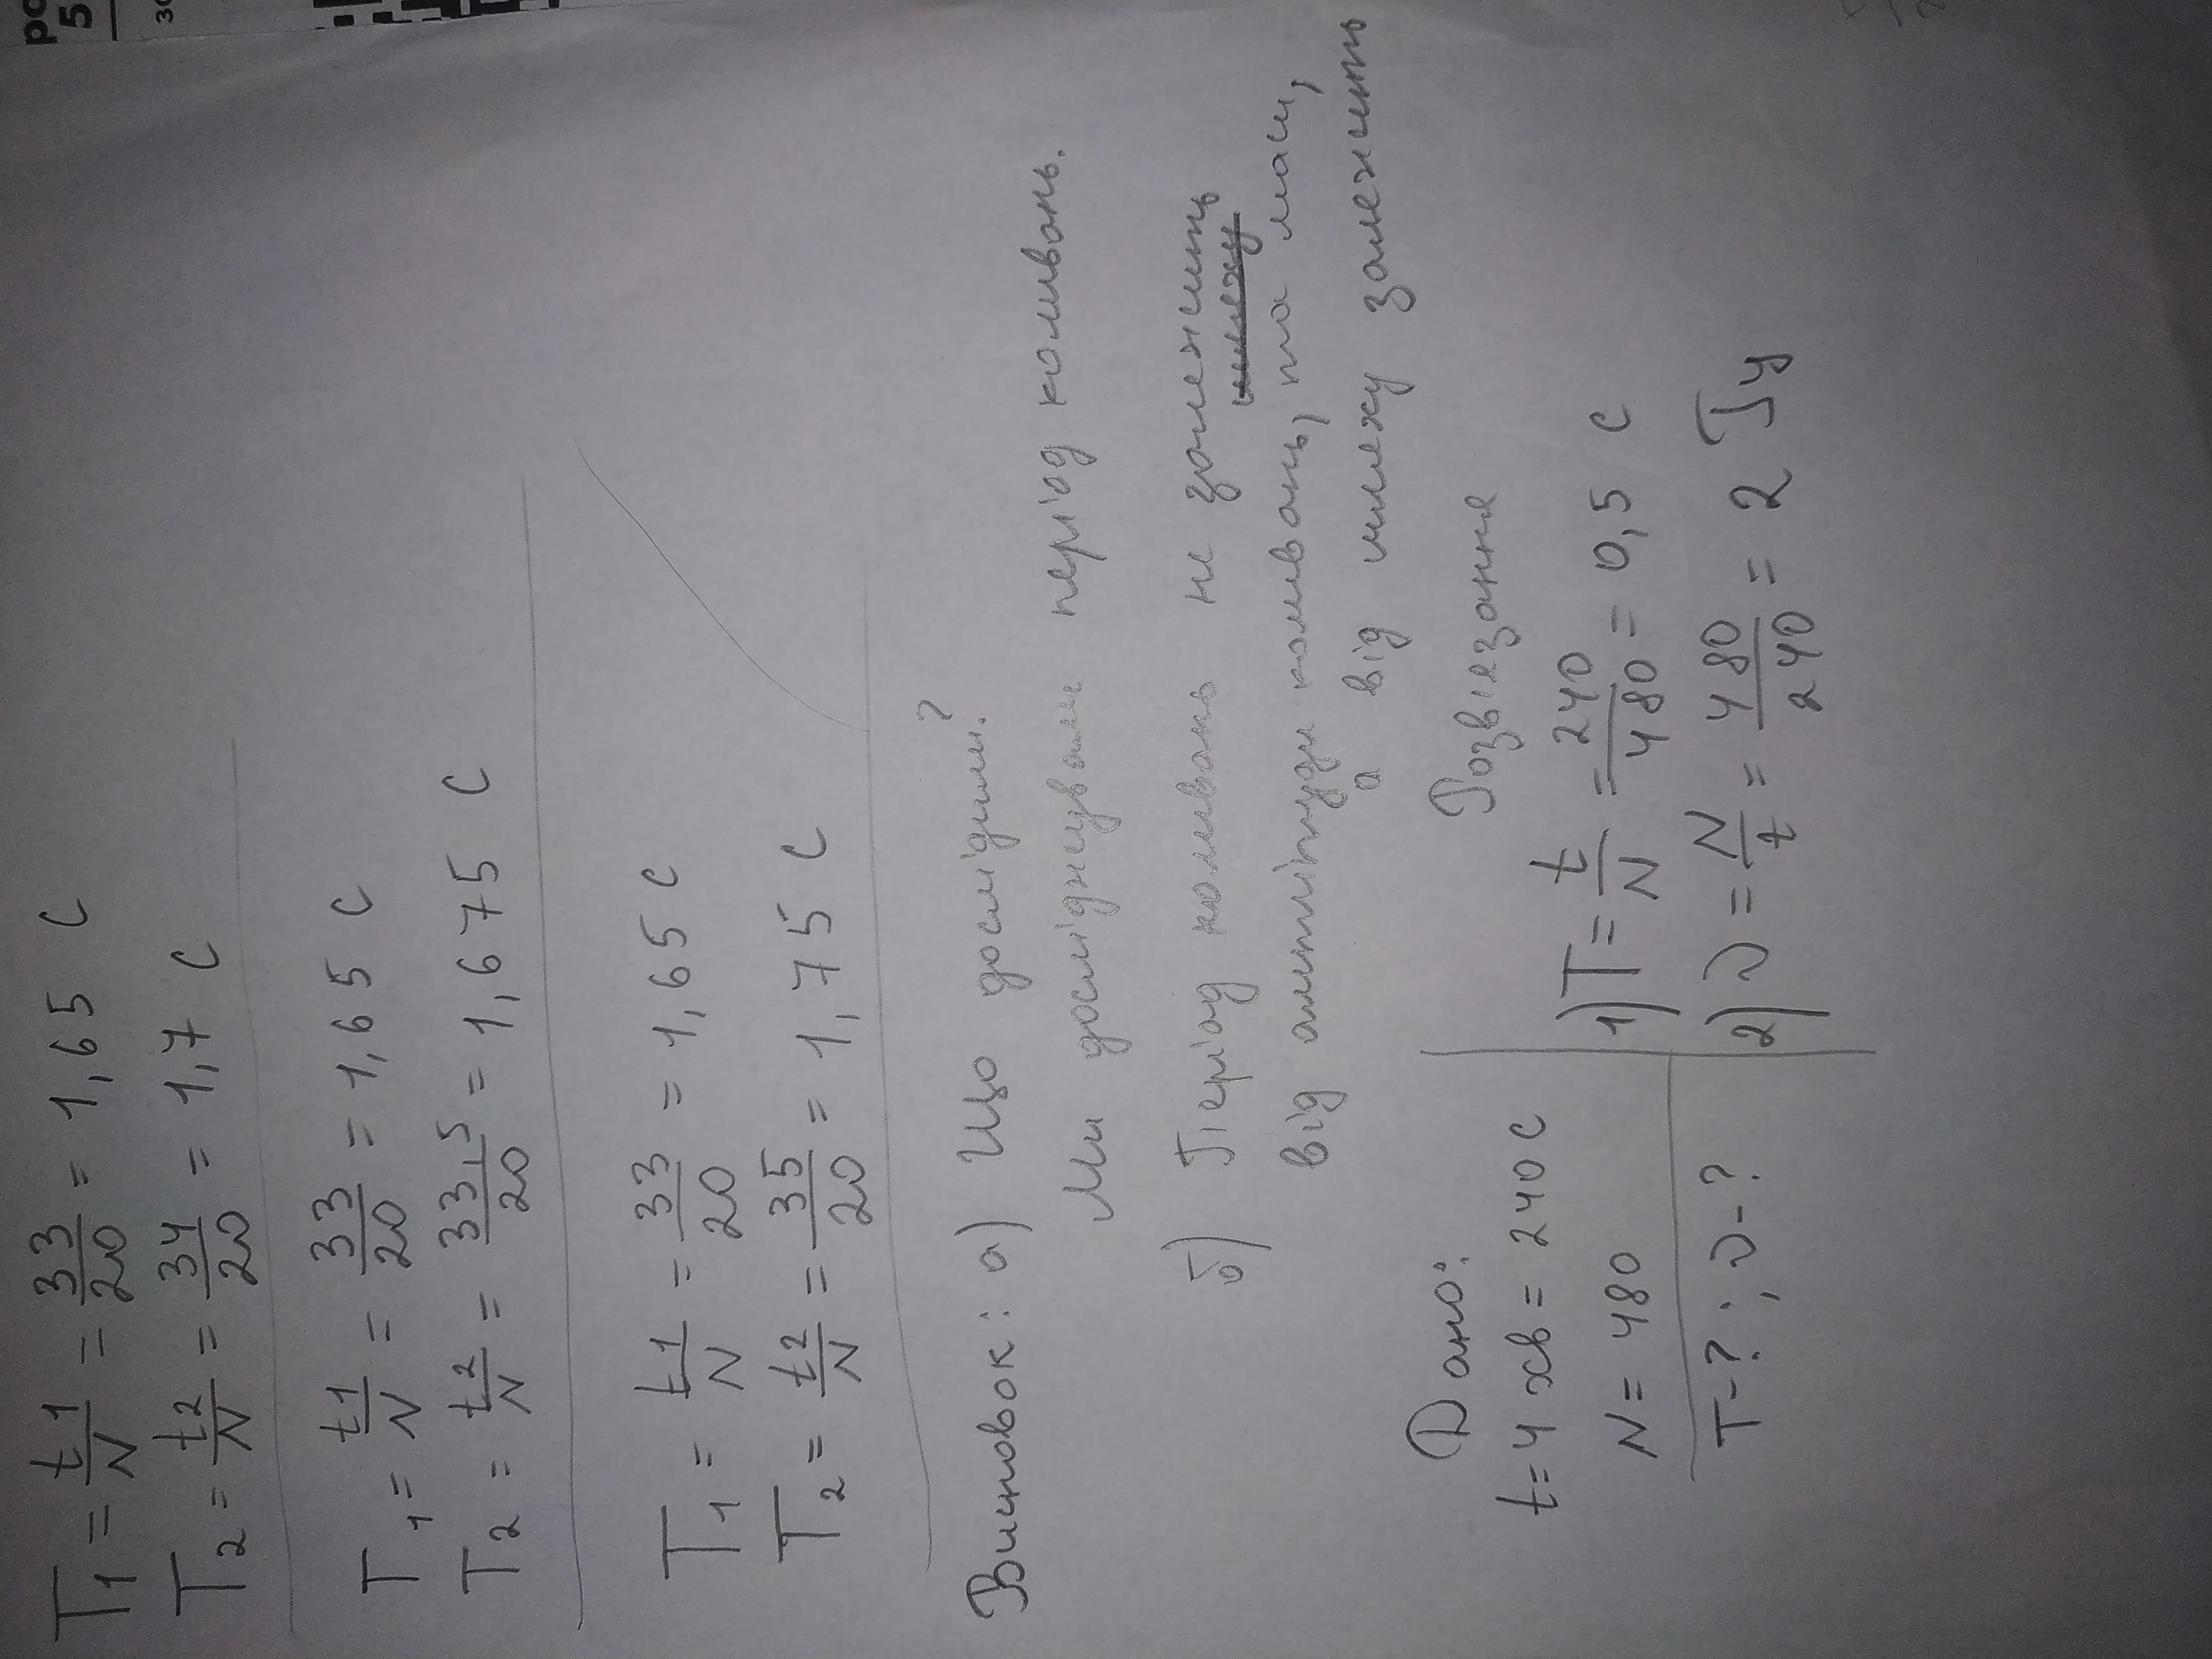 T₁ = t1/N = 33/20 = 1,65 с
T₂ = t2/N = 34/20 = 1,7 с
T₁ = t1/N = 33/20 = 1,65 с
T₂ = t2/N = 33,5/20 = 1,675 с
T₁ = t1/N = 33/20 = 1,65 с
T₂ = t2/N = 35/20 = 1,75 с
Висновок: а) Що дослідили?
Ми досліджували період коливань.
б) Період коливань не залежить
від амплітуди коливань, та маси,
а від шляху залежить
Дано:
t = 4 хв = 240 с
N = 480
T - ? ; ν - ?
Розвʼязання
1) T = t/N = 240/480 = 0,5 с
2) ν = N/t = 480/240 = 2 Гц